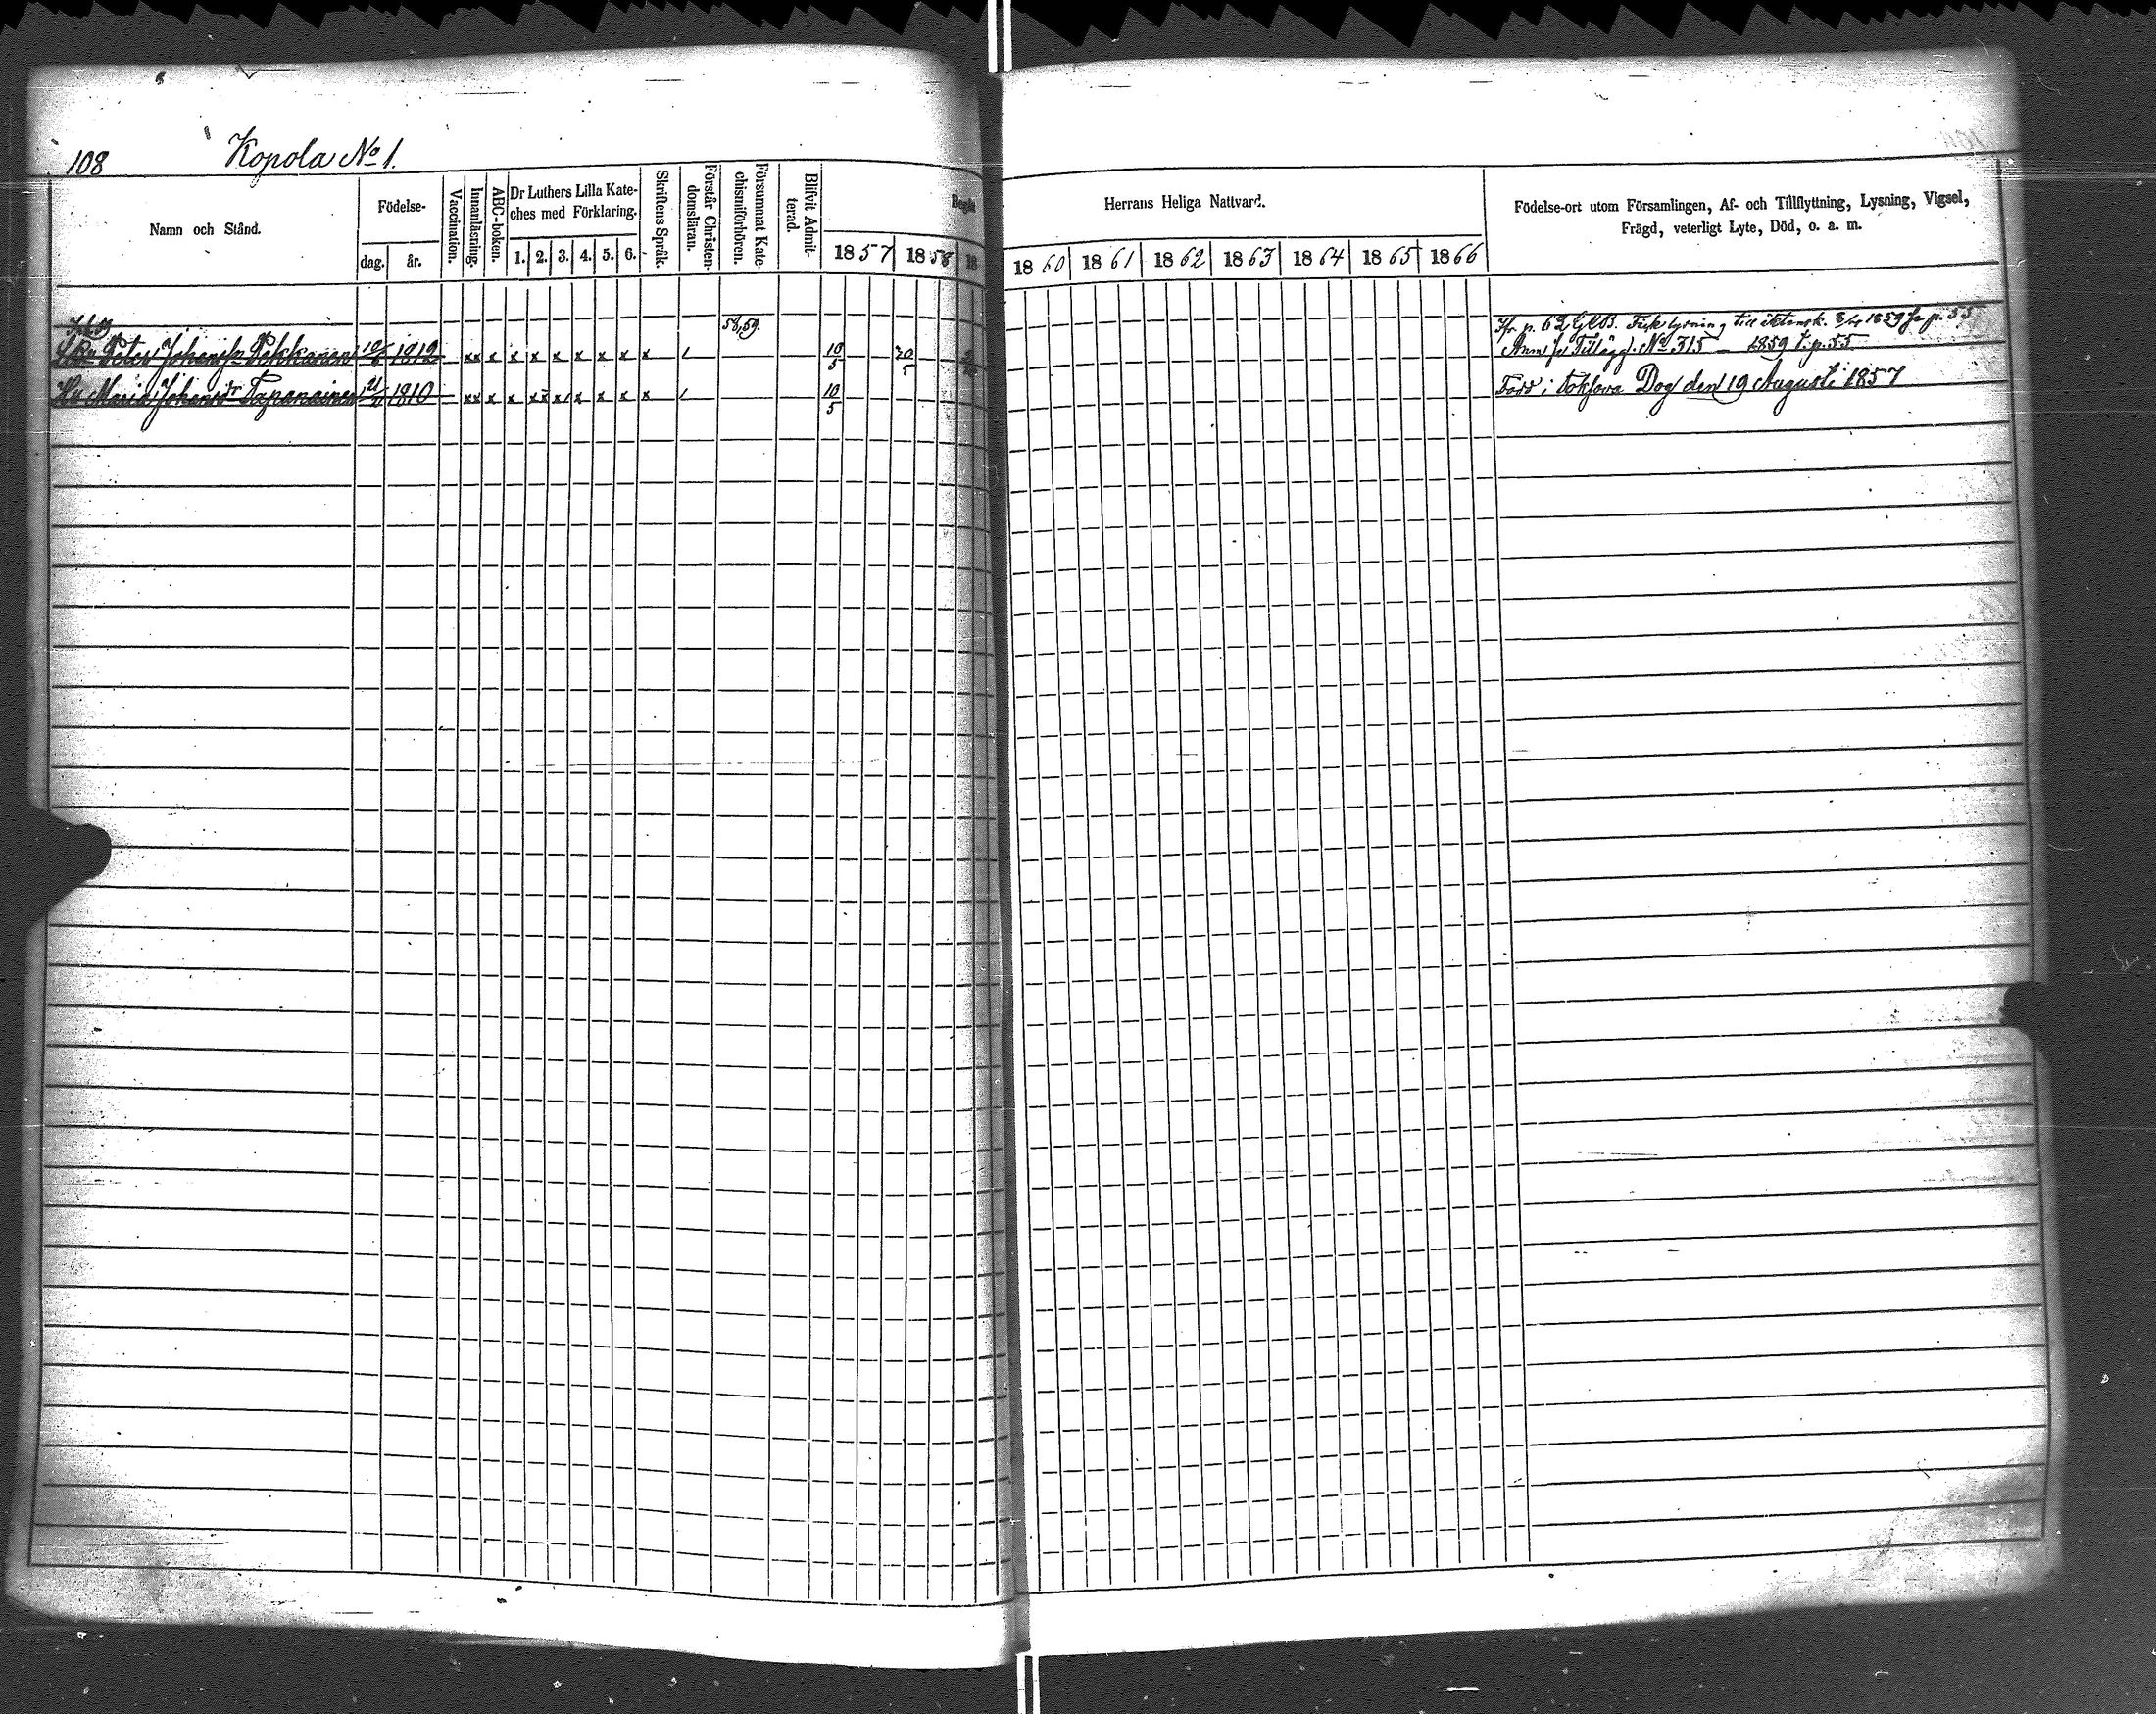 108 Kopola No 1.
Namn och Stånd.
Födelse-
dag. år.
Vaccination.
Innanläsning.
ABC-boken.
Dr Luthers Lilla Kate-
ches med Förklaring.
1. 2. 3. 4. 5. 6.
Skriftens Språk.
Förstår Christen-
domsläran.
Försummat Kate-
chismiförhören.
Blifvit Admit-
terad.
1857 1858 18
Herrans Heliga Nattvard.
1860 1861 1862 1863 1864 1865 1866
Födelse-ort utom Församlingen, Af- och Tillflyttning, Lysning, Vigsel,
Frägd, veterligt Lyte, Död, o. a. m.
58,59. p. 62 Fick lysning till 1859 p. 55
Peter Johansn Pekkanen 10/ 1812 xx x x x x x x x x 1 10/5 20/5 Tillägg. No 315 – 1859 p. 55
Hu Maria Johansdr Tapanainen 21/ 1810 xx x x xx x x x x x 1 10/5 Född i Dog den 19 Augusti 1857